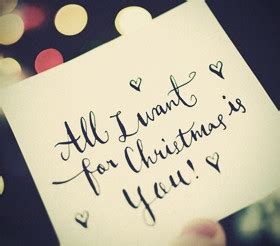 All I want
for Christmas is
you!